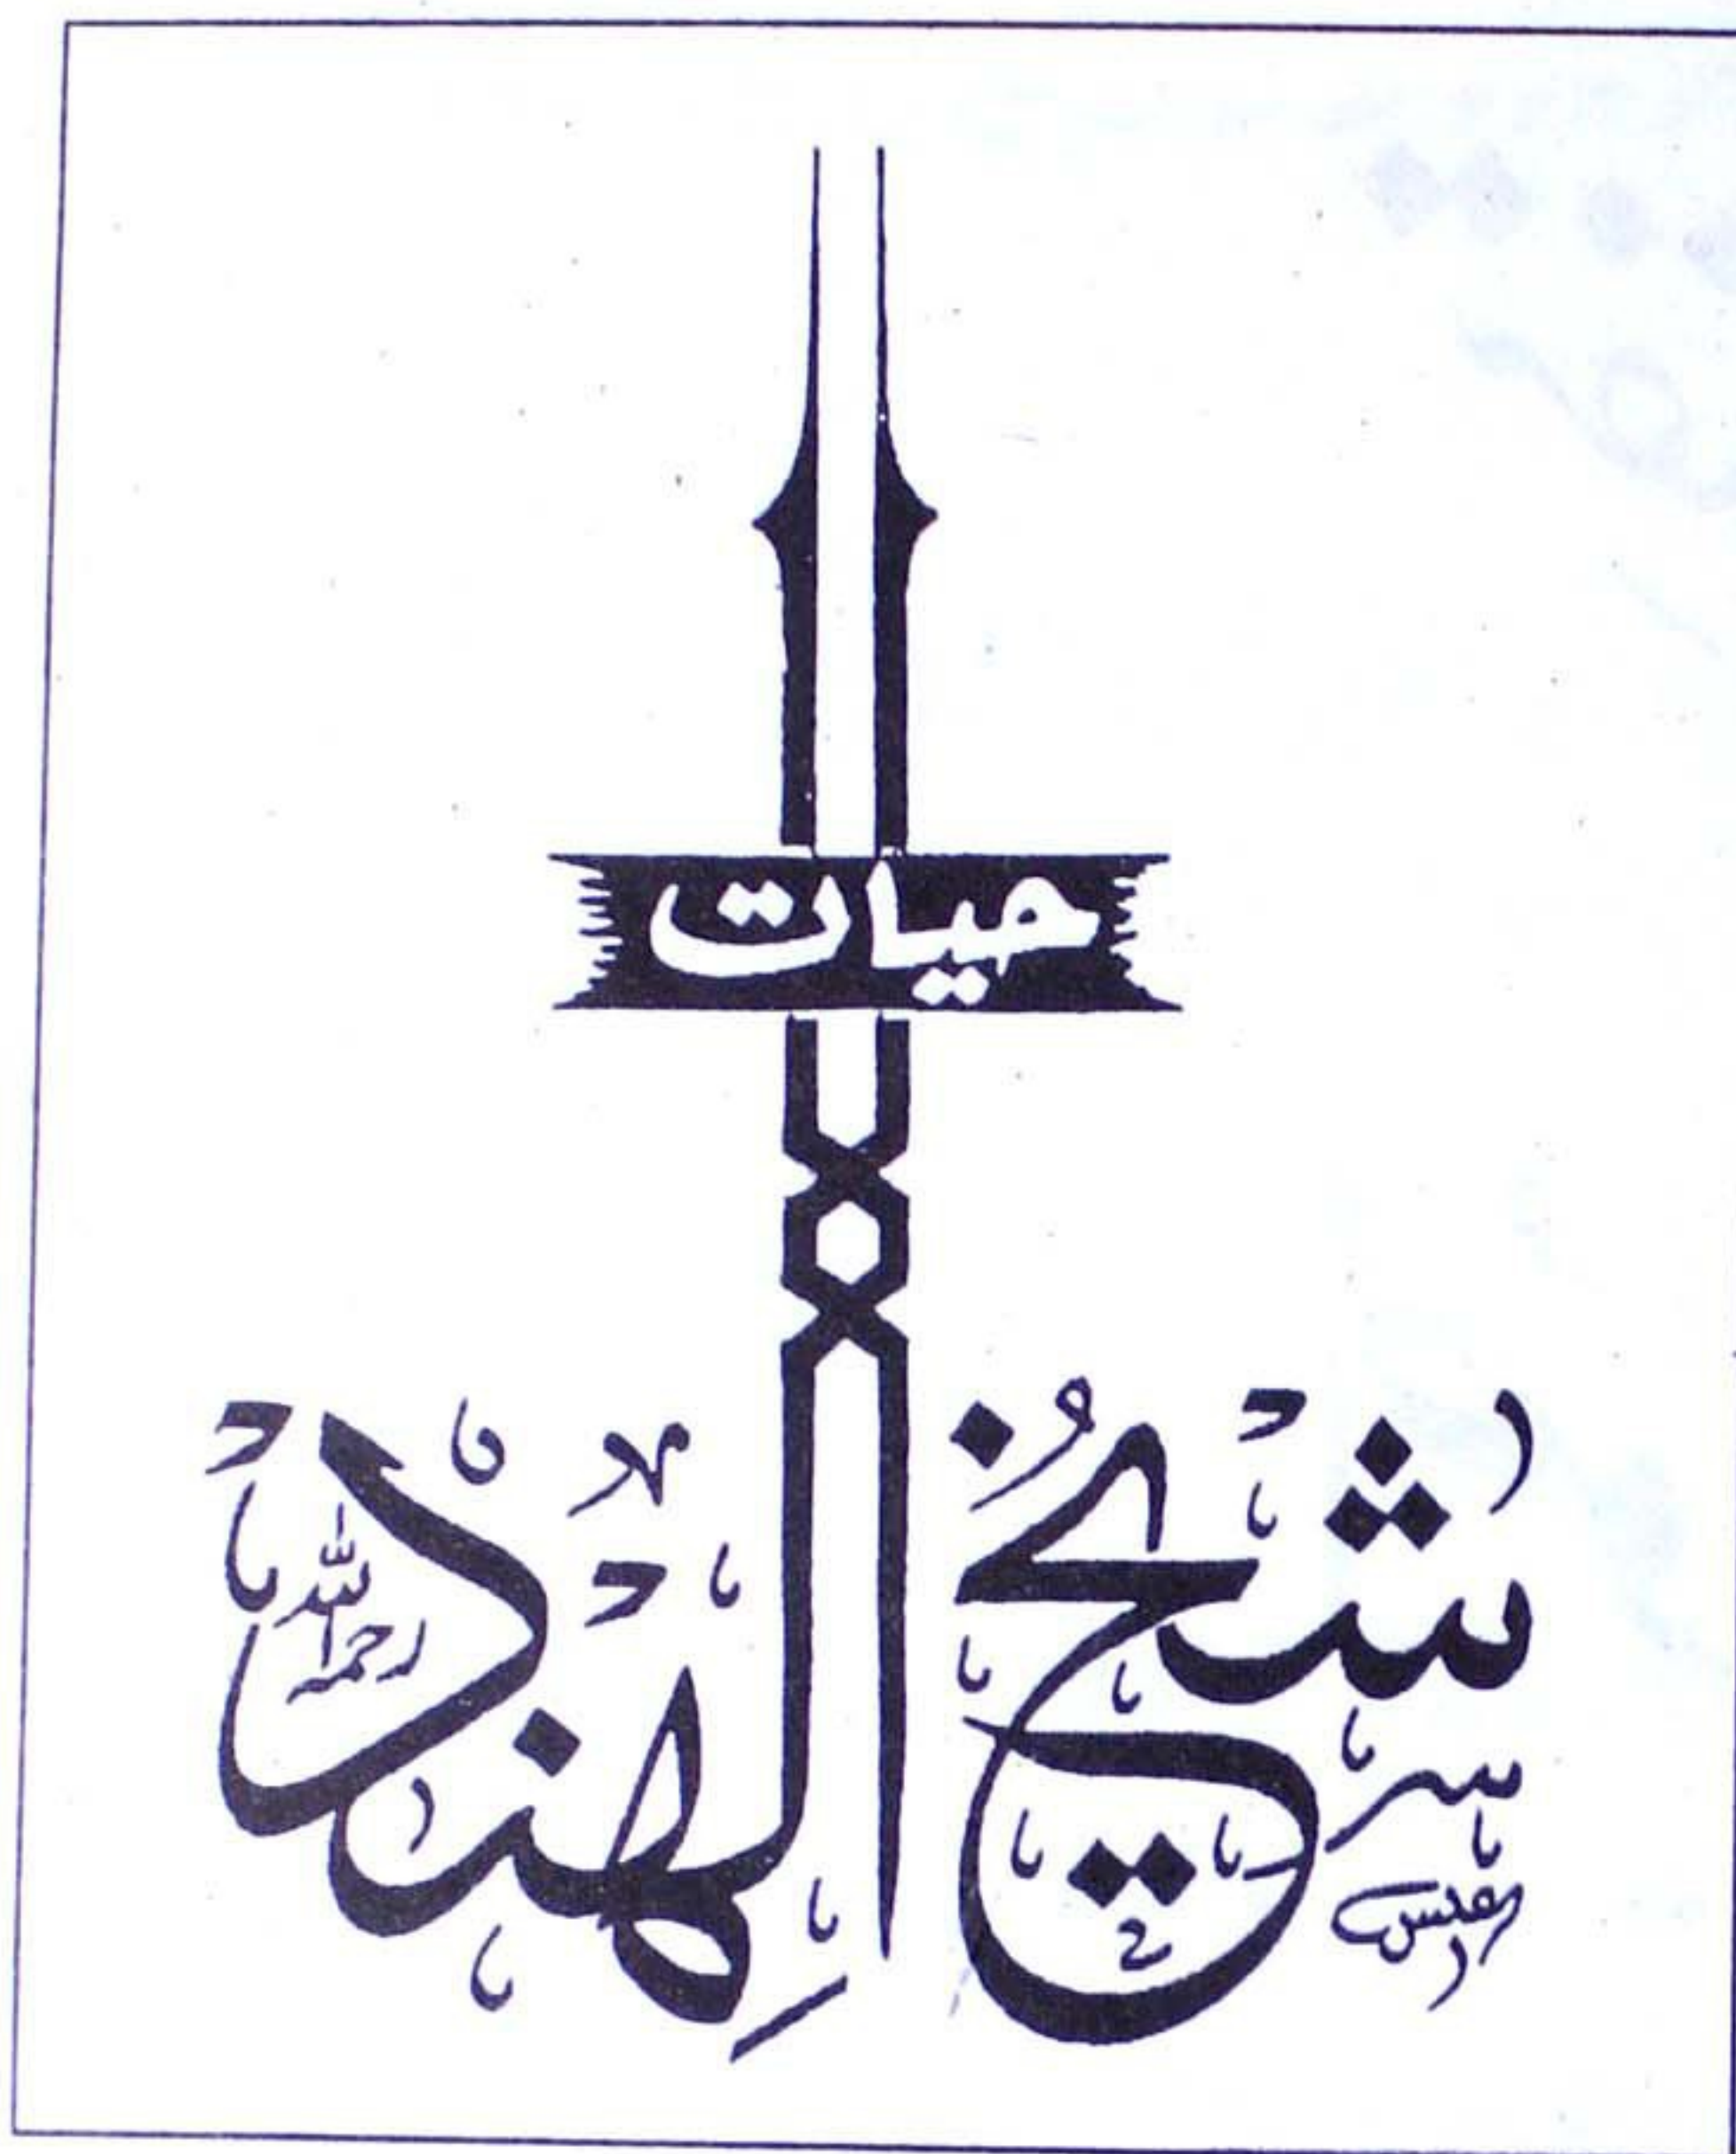 حیات
شیخُ الهِند
رحمہ اللہ